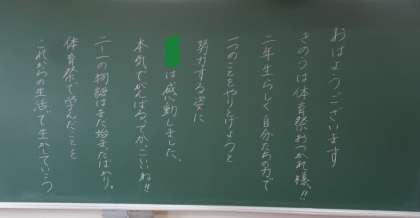 おはようございます
きのうは体育祭おつかれ様!!
二年生らしく自分たちの力で
一つのことをやりとげようと
努力する姿に
は感動しました。
本気でがんばるってかっこいいね!!
二ー一の物語はまだ始まったばかり。
体育祭で学んだことを
これからの生活で生かしていこう